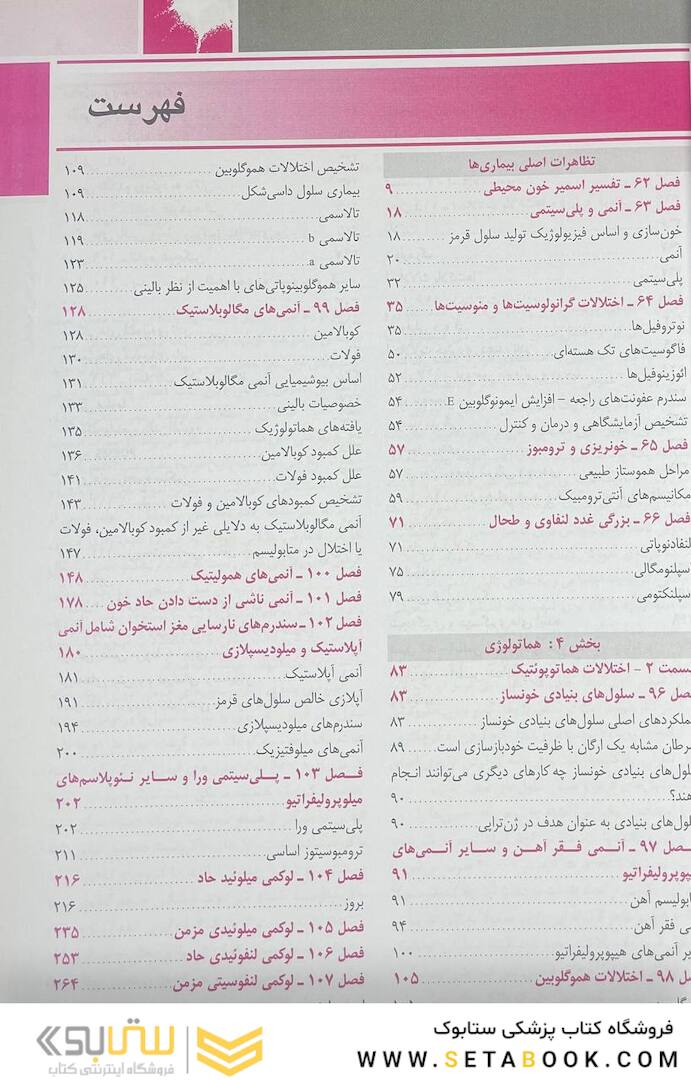 فهرست
تظاهرات اصلی بیماری‌ها
فصل ۶۲ ـ تفسیر اسمیر خون محیطی ۹
فصل ۶۳ ـ آنمی و پلی‌سیتمی ۱۸
خون‌سازی و اساس فیزیولوژیک تولید سلول قرمز ۱۸
آنمی ۲۰
پلی‌سیتمی ۳۲
فصل ۶۴ ـ اختلالات گرانولوسیت‌ها و منوسیت‌ها ۳۵
نوتروفیل‌ها ۳۵
فاگوسیت‌های تک هسته‌ای ۵۰
ائوزینوفیل‌ها ۵۲
سندرم عفونت‌های راجعه – افزایش ایمونوگلوبین E ۵۴
تشخیص آزمایشگاهی و درمان و کنترل ۵۴
فصل ۶۵ ـ خونریزی و ترومبوز ۵۷
مراحل هموستاز طبیعی ۵۷
مکانیسم‌های آنتی‌ترومبیک ۵۹
فصل ۶۶ ـ بزرگی غدد لنفاوی و طحال ۷۱
لنفادنوپاتی ۷۱
سپلنومگالی ۷۵
سپلنکتومی ۷۹
بخش ۴: هماتولوژی
سمت ۲ – اختلالات هماتوپوئتیک ۸۳
صل ۹۶ ـ سلول‌های بنیادی خونساز ۸۳
ملکردهای اصلی سلول‌های بنیادی خونساز ۸۳
رطان مشابه یک ارگان با ظرفیت خودبازسازی است ۸۹
لول‌های بنیادی خونساز چه کارهای دیگری می‌توانند انجام
هند؟ ۹۰
لول‌های بنیادی به عنوان هدف در ژن‌تراپی ۹۰
صل ۹۷ ـ آنمی فقر آهن و سایر آنمی‌های
یپوپرولیفراتیو ۹۱
ابولیسم آهن ۹۱
ی فقر آهن ۹۴
یر آنمی‌های هیپوپرولیفراتیو ۱۰۰
ل ۹۸ ـ اختلالات هموگلوبین ۱۰۵
تشخیص اختلالات هموگلوبین ۱۰۹
بیماری سلول داسی‌شکل ۱۰۹
تالاسمی ۱۱۸
تالاسمی b ۱۱۹
تالاسمی a ۱۲۳
سایر هموگلوبینوپاتی‌های با اهمیت از نظر بالینی ۱۲۵
فصل ۹۹ ـ آنمی‌های مگالوبلاستیک ۱۲۸
کوبالامین ۱۲۸
فولات ۱۳۰
اساس بیوشیمیایی آنمی مگالوبلاستیک ۱۳۱
خصوصیات بالینی ۱۳۳
یافته‌های هماتولوژیک ۱۳۵
علل کمبود کوبالامین ۱۳۶
علل کمبود فولات ۱۴۱
تشخیص کمبودهای کوبالامین و فولات ۱۴۳
آنمی مگالوبلاستیک به دلایلی غیر از کمبود کوبالامین، فولات
یا اختلال در متابولیسم ۱۴۷
فصل ۱۰۰ ـ آنمی‌های همولیتیک ۱۴۸
فصل ۱۰۱ ـ آنمی ناشی از دست دادن حاد خون ۱۷۸
فصل ۱۰۲ ـ سندرم‌های نارسایی مغز استخوان شامل آنمی
آپلاستیک و میلودیسپلازی ۱۸۰
آنمی آپلاستیک ۱۸۱
آپلازی خالص سلول‌های قرمز ۱۹۱
سندرم‌های میلودیسپلازی ۱۹۴
آنمی‌های میلوفتیزیک ۲۰۰
فصل ۱۰۳ ـ پلی‌سیتمی ورا و سایر نئوپلاسم‌های
میلوپرولیفراتیو ۲۰۲
پلی‌سیتمی ورا ۲۰۲
ترومبوسیتوز اساسی ۲۱۱
فصل ۱۰۴ ـ لوکمی میلوئید حاد ۲۱۶
بروز ۲۱۶
فصل ۱۰۵ ـ لوکمی میلوئیدی مزمن ۲۳۵
فصل ۱۰۶ ـ لوکمی لنفوئیدی حاد ۲۵۳
فصل ۱۰۷ ـ لوکمی لنفوسیتی مزمن ۲۶۴
فروشگاه کتاب پزشکی ستابوک
WWW.SETABOOK.COM
ستابوک
فروشگاه اینترنتی کتاب